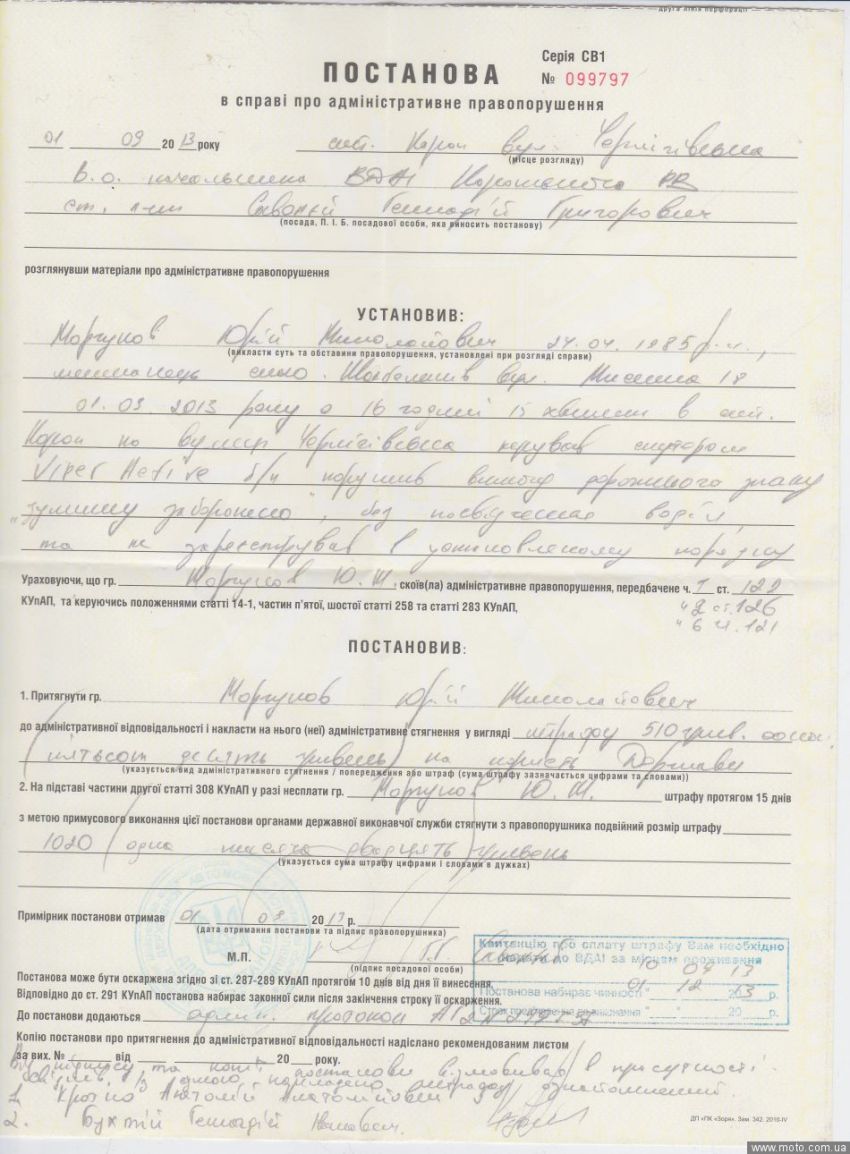 друга лінія перфорації
Серія СВ1
ПОСТАНОВА
№ 099797
в справі про адміністративне правопорушення
01 09 2013 року смт. Короп вул. Чернігівська
(місце розгляду)
В.о. начальника ВДАІ
Геннадій Григорович
(посада, П. І. Б. посадової особи, яка виносить постанову)
розглянувши матеріали про адміністративне правопорушення
УСТАНОВИВ:
Моргунов Юрій Миколайович 24.04.1985 р.н.,
(викласти суть та обставини правопорушення, установлені при розгляді справи)
мешканець вул. 18
2013 року о 16 годині 15 хвилин в смт.
Короп по вулиці Чернігівська керував скутером
Viper Active б/н порушив вимогу дорожнього знаку
"зупинку заборонено", без посвідчення водія,
та не зареєстрував в установленому порядку
Ураховуючи, що гр. Моргунов Ю.М. , скоїв(ла) адміністративне правопорушення, передбачене ч. 1 ст. 122
КУпАП, та керуючись положеннями статті 14-1, частин п'ятої, шостої статті 258 та статті 283 КУпАП,
"2 ст. 126
" 6 ст. 121
ПОСТАНОВИВ:
1. Притягнути гр. Моргунов Юрій Миколайович
до адміністративної відповідальності і накласти на нього (неї) адміністративне стягнення у вигляді штрафу 510 грив.
(п'ятьсот десять гривень) на користь Держави
(указується вид адміністративного стягнення / попередження або штраф (сума штрафу зазначається цифрами та словами))
2. На підставі частини другої статті 308 КУпАП у разі несплати гр. Моргунов Ю.М. штрафу протягом 15 днів
з метою примусового виконання цієї постанови органами державної виконавчої служби стягнути з правопорушника подвійний розмір штрафу
1020 (одна тисяча двадцять гривень
(указується сума штрафу цифрами і словами в дужках)
Примірник постанови отримав 01 2013 р.
(дата отримання постанови та підпис правопорушника)
М.П.
(підпис посадової особи)
Квитанцію про сплату штрафу Вам необхідно
надати до ВДАІ за місцем проживання
10 04 13
Постанова може бути оскаржена згідно зі ст. 287-289 КУпАП протягом 10 днів від дня її винесення.
Постанова набирає чинності 01 12 2013 р.
Відповідно до ст. 291 КУпАП постанова набирає законної сили після закінчення строку її оскарження.
20 р.
До постанови додаються адмін. протокол
Копію постанови про притягнення до адміністративної відповідальності надіслано рекомендованим листом
за вих. № від 20 року.
Від підпису та копії постанови відмовився в присутності
свідків.
1. Анатолій Анатолійович
2. Геннадій Іванович.
ДП «ПК «Зоря». Зам. 342. 2010-IV
www.moto.com.ua